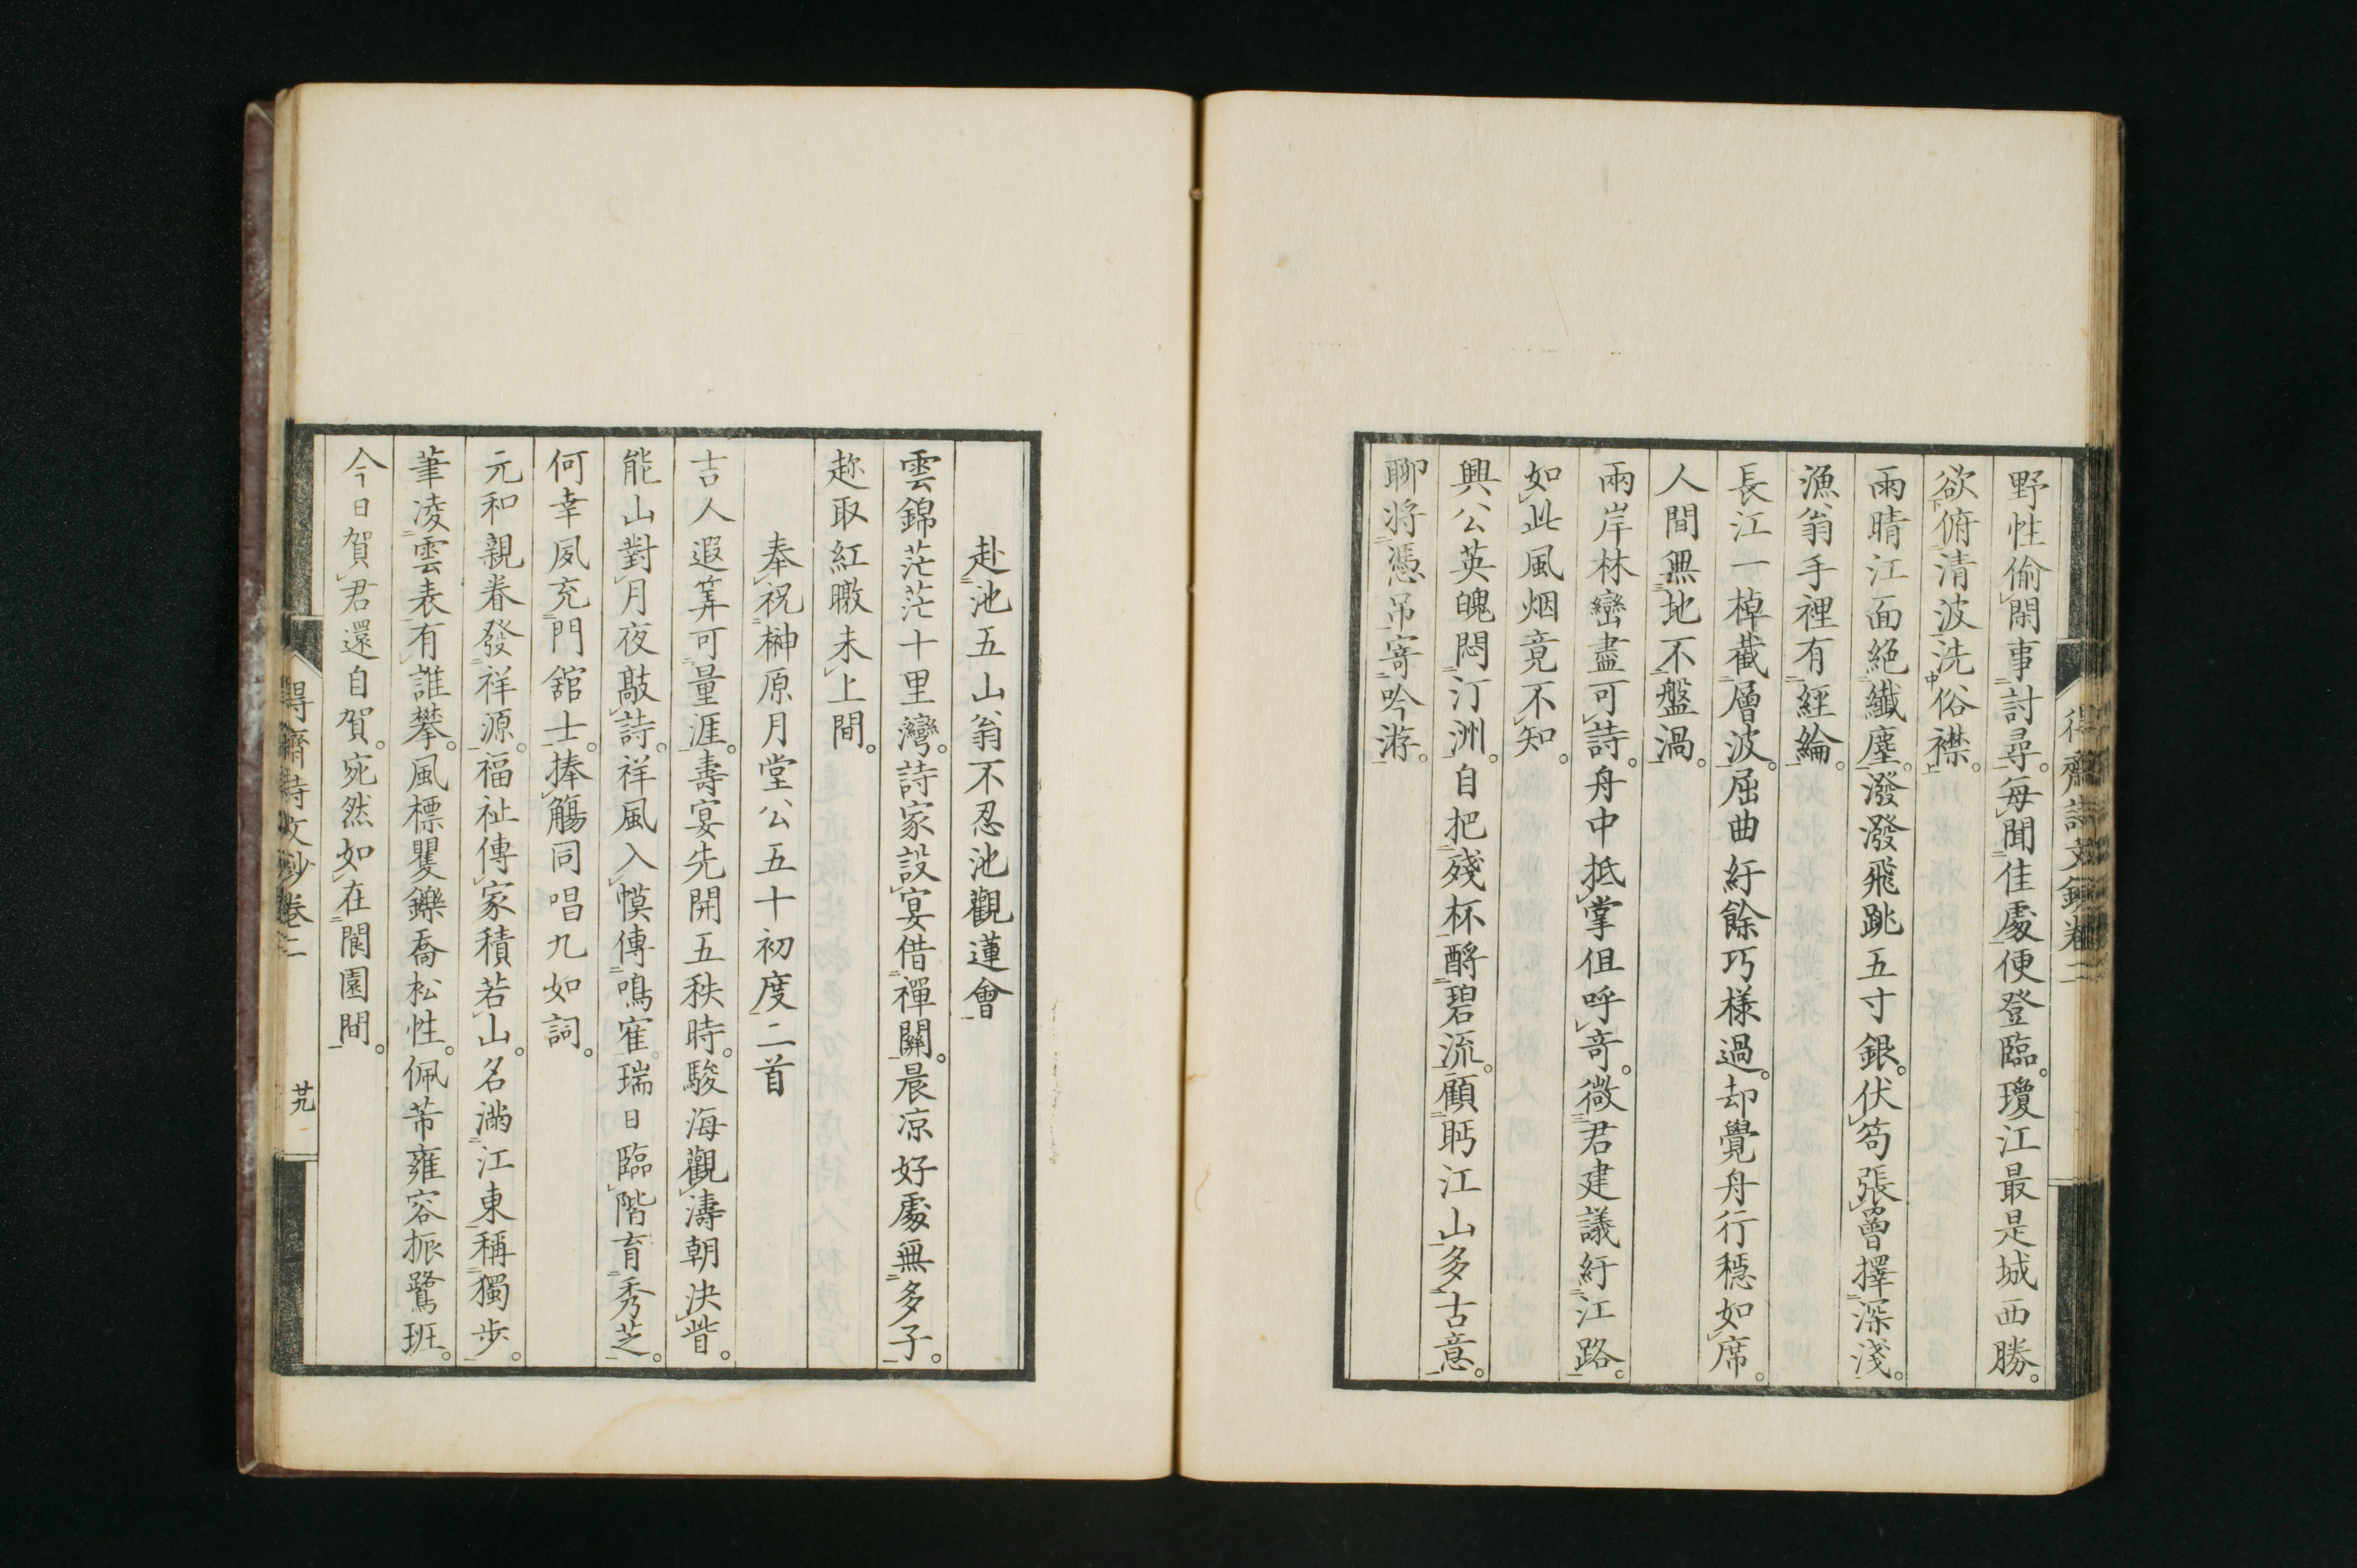 野性偷閑事討尋。每聞佳處便登臨。瓊江最是城西勝。
欲俯清波洗俗襟。
雨晴江面絕纖塵。潑潑飛跳五寸銀。伏笱張罾擇深淺。
漁翁手裡有經綸。
長江一棹截層波。屈曲紆餘巧樣過。却覺舟行穩如席。
人間無地不盤渦。
兩岸林巒盡可詩。舟中抵掌但呼奇。微君建議紆江路。
如此風烟竟不知。
興公英魄悶汀洲。自把殘杯酹碧流。顧眄江山多古意。
聊將憑吊寄吟游。
得齋詩文鈔卷二
赴池五山翁不忍池觀蓮會
雲錦茫茫十里灣。詩家設宴借禪關。晨凉好處無多子。
趂取紅暾未上間。
奉祝榊原月堂公五十初度二首
吉人遐筭可量涯。壽宴先開五秩時。駿海觀濤朝決眥。
能山對月夜敲詩。祥風入幙傳鳴寉。瑞日臨階育秀芝。
何幸夙充門舘士。捧觴同唱九如詞。
元和親眷發祥源。福祉傳家積若山。名滿江東稱獨步。
筆凌雲表有誰攀。風標矍鑠喬松性。佩芾雍容振鷺班。
今日賀君還自賀。宛然如在閬園間。
得齋詩文鈔卷二
廿九